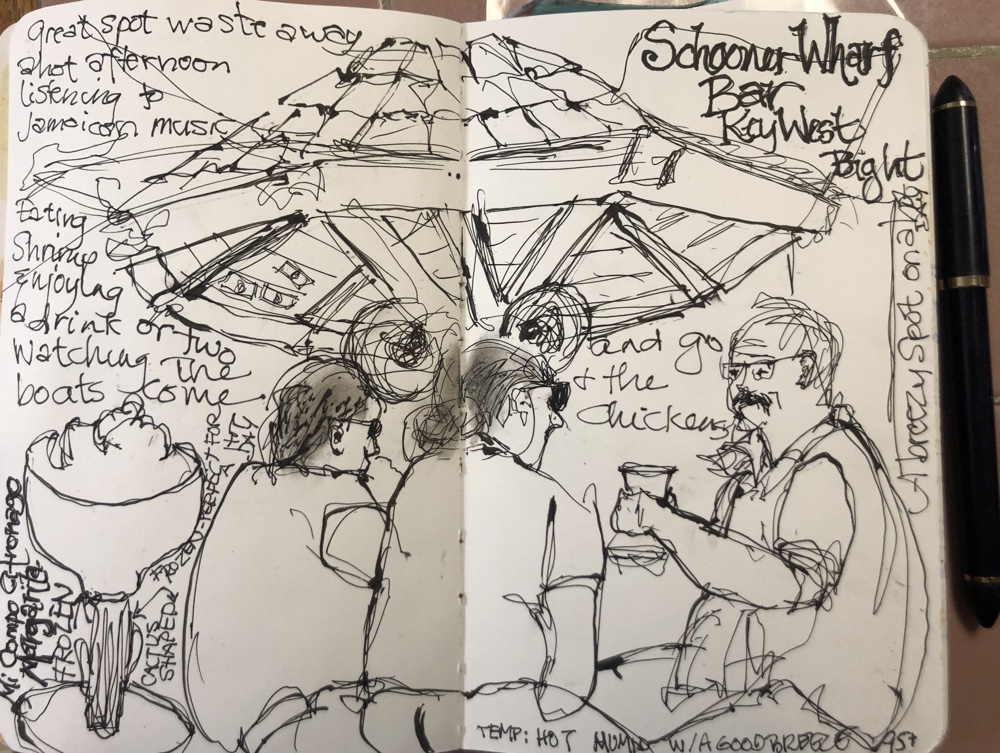 great spot waste away
a hot afternoon
listening to
Jamaican music
Eating
Shrimp
Enjoying
a drink or two
watching the
boats come
and go
+ the
chickens
Schooner Wharf
Bar
Key West
Bight
A breezy spot on a
FROZEN - PERFECT FOR
A HOT
DAY
CACTUS
SHAPED
FROZEN
Margarita
TEMP: HOT HUMID W/A GOOD BREEZE 95+